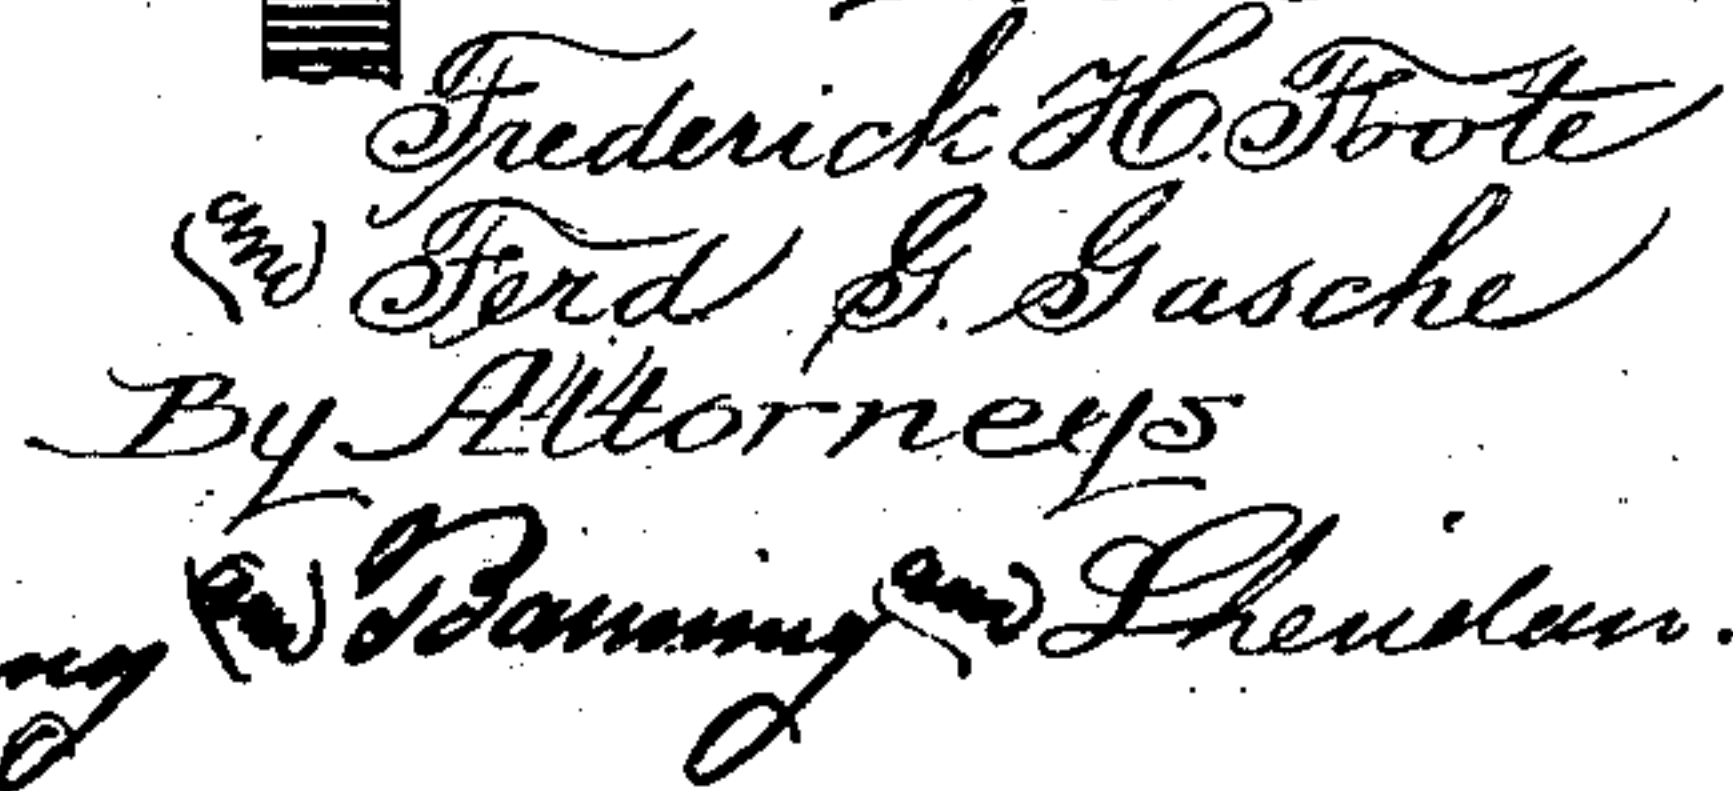 Frederick H. Foote
(and) Ferd G. Gasche
By Attorneys
ng (and) Banning (and) Sheridan.